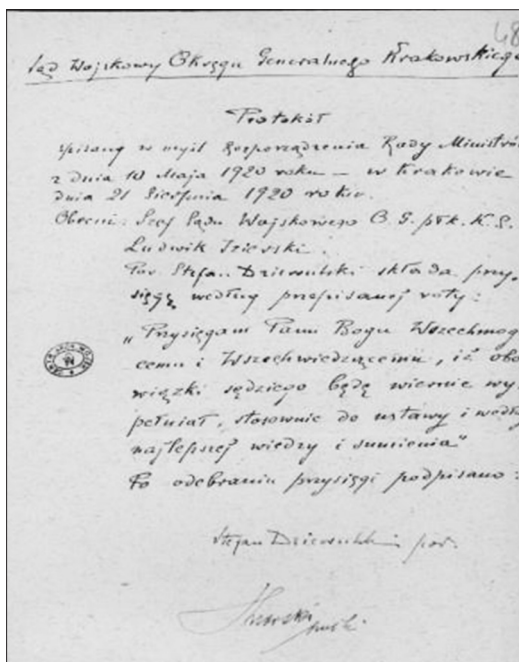 48
Sąd Wojskowy Okręgu Generalnego Krakowskiego
Protokół
spisany w myśl Rozporządzenia Rady Ministrów
z dnia 10 Maja 1920 roku – w Krakowie
dnia 21 Sierpnia 1920 roku.
Obecni: Szef Sądu Wojskowego O. G. płk. K. S.
Ludwik
Por. Stefan Dziewulski składa przy-
sięgę według przepisanej roty:
„Przysięgam Panu Bogu Wszechmogą
cemu i Wszechwiedzącemu, iż obo
wiązki sędziego będę wiernie wy-
pełniał, stosownie do ustawy i według
najlepszej wiedzy i sumienia"
Po odebraniu przysięgi podpisano:
Stefan Dziewulski por.